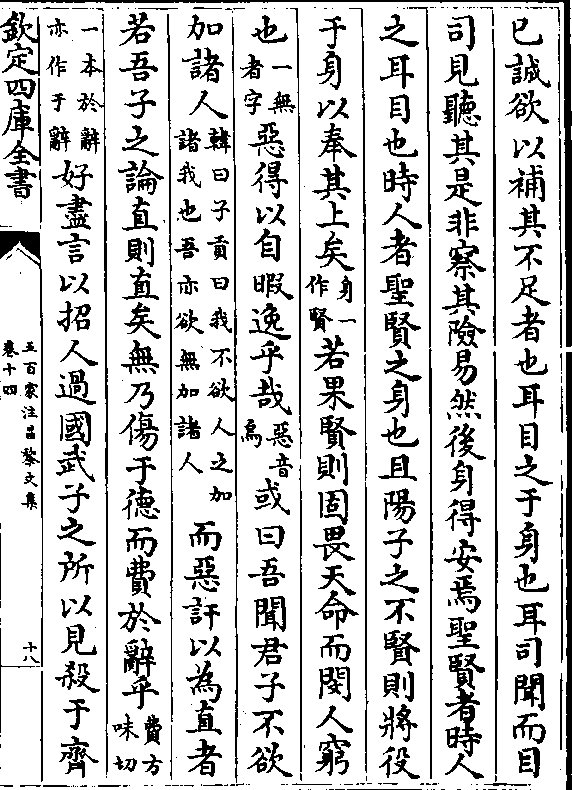 已誠欲以補其不足者也耳目之于身也耳司聞而目
司見聽其是非察其險易然後身得安焉聖賢者時人
之耳目也時人者聖賢之身也且陽子之不賢則將役
于身以奉其上矣身一作賢若果賢則固畏天命而閔人窮
也一無者字惡得以自暇逸乎哉惡音烏或曰吾聞君子不欲
加諸人韓曰子貢曰我不欲人之加諸我也吾亦欲無加諸人而惡訐以為直者
若吾子之論直則直矣無乃傷于德而費於辭乎費方味切
一本於辭亦作于辭好盡言以招人過國武子之所以見殺于齊
欽定四庫全書
五百家注昌黎文集
卷十四
十八